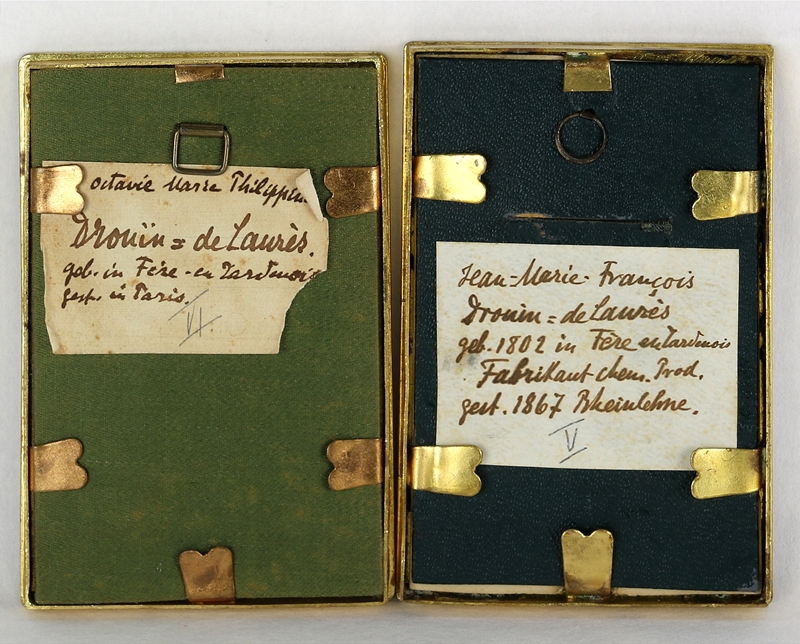 octavie Marie Philippin
Drouin = de Laurès.
geb. in Fère-en Tardenois
gest. in Paris.
VI.
Jean-Marie-François
Drouin = de Laurès
geb. 1802 in Fère en Tardenois
Fabrikant chem. Prod.
gest. 1867 Rheinlehne.
V